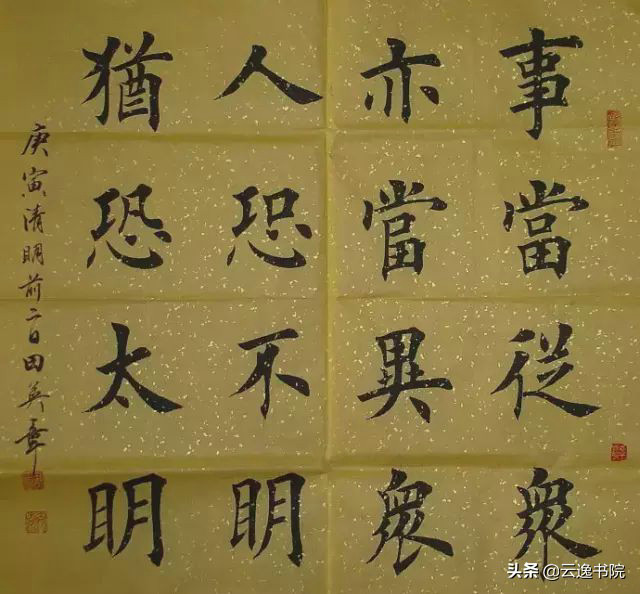 事當從衆
亦當異衆
人恐不明
猶恐太明
庚寅清明前二日田英章
头条 @云逸书院